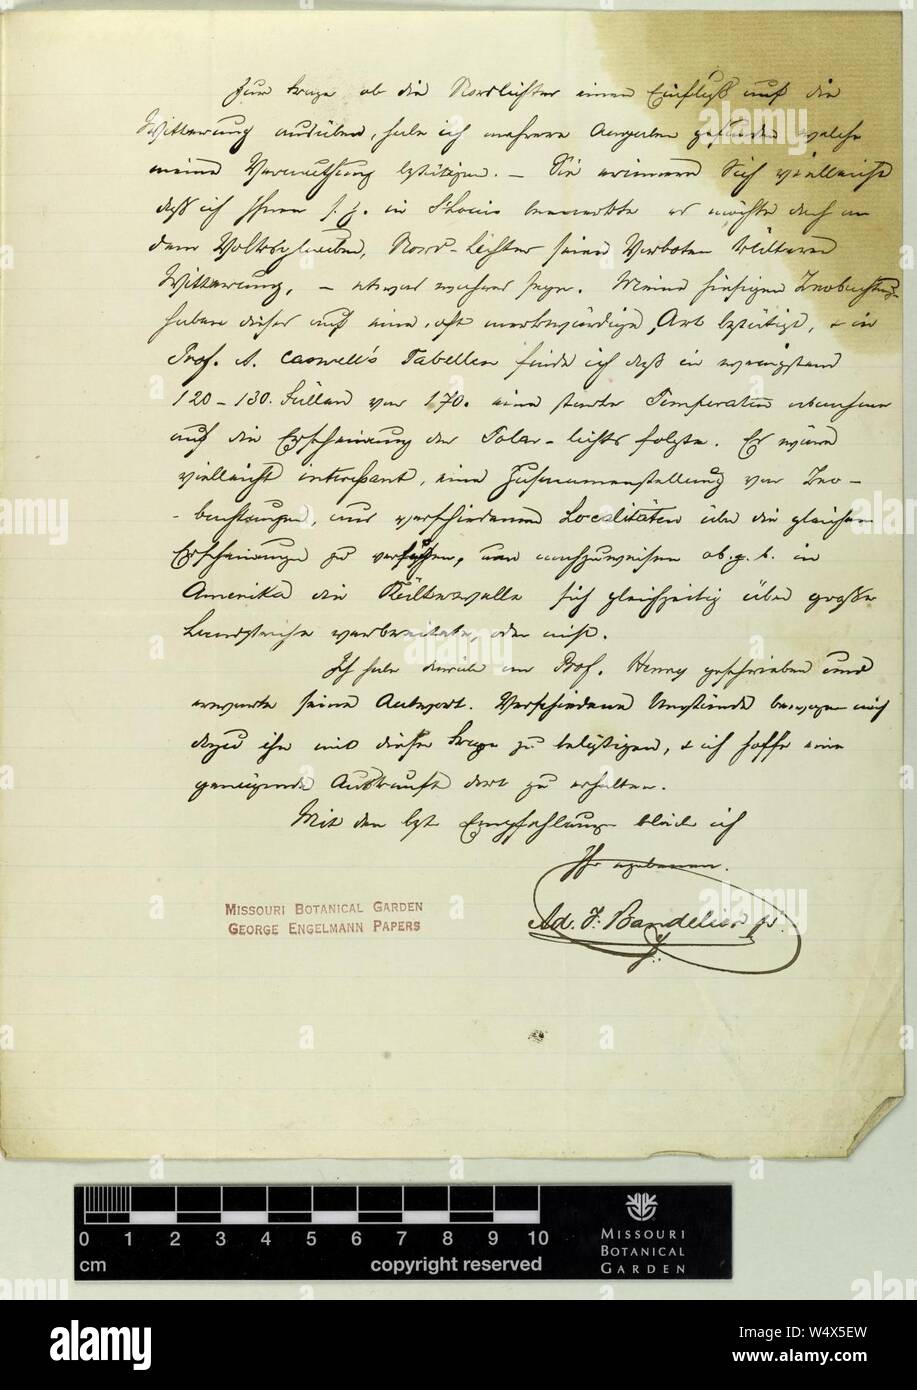 Zur Frage ob die Nordlichter einen Einfluß auf die
Witterung ausüben, habe ich mehrere Angaben gefunden welche
meine Vermuthung bestätigen. – Sie erinnern Sich vielleicht
daß ich Ihnen s. Z. in St Louis bemerkte es möchte doch an
dem Volksglauben, Nord-Lichter seien Vorboten kälterer
Witterung, – etwas wahres sein. Meine hiesigen Beobachtung
haben dieses auf eine, oft merkwürdige Art bestätigt, & in
Prof. A. Caswell's Tabellen finde ich daß in wenigstens
120 – 130. Fällen von 170. eine starke Temperatur abnahme
auf die Erscheinung des Polar-lichts folgte. Es wäre
vielleicht interessant, eine Zusammenstellung von Beo-
-bachtungen, aus verschiedenen Localitäten über die gleichen
Erscheinungen zu versuchen, um nachzuweisen ob z. b. in
Amerika die Kältewelle sich gleichzeitig über große
Landstriche verbreitete, oder nicht.
Ich habe an Prof. Henry geschrieben und
erwarte seine Antwort. Verschiedene Umstände bewogen mich
dazu ihn mit dieser Frage zu belästigen, & ich hoffe eine
genügende Auskunft dort zu erhalten.
Mit den bst Empfehlungen bleibe ich
Ihr ergebener.
Ad. F. Bandelier jr.
MISSOURI BOTANICAL GARDEN
GEORGE ENGELMANN PAPERS
0 1 2 3 4 5 6 7 8 9 10
cm
copyright reserved
MISSOURI
BOTANICAL
GARDEN
alamy
Image ID: W4X5EW
www.alamy.com